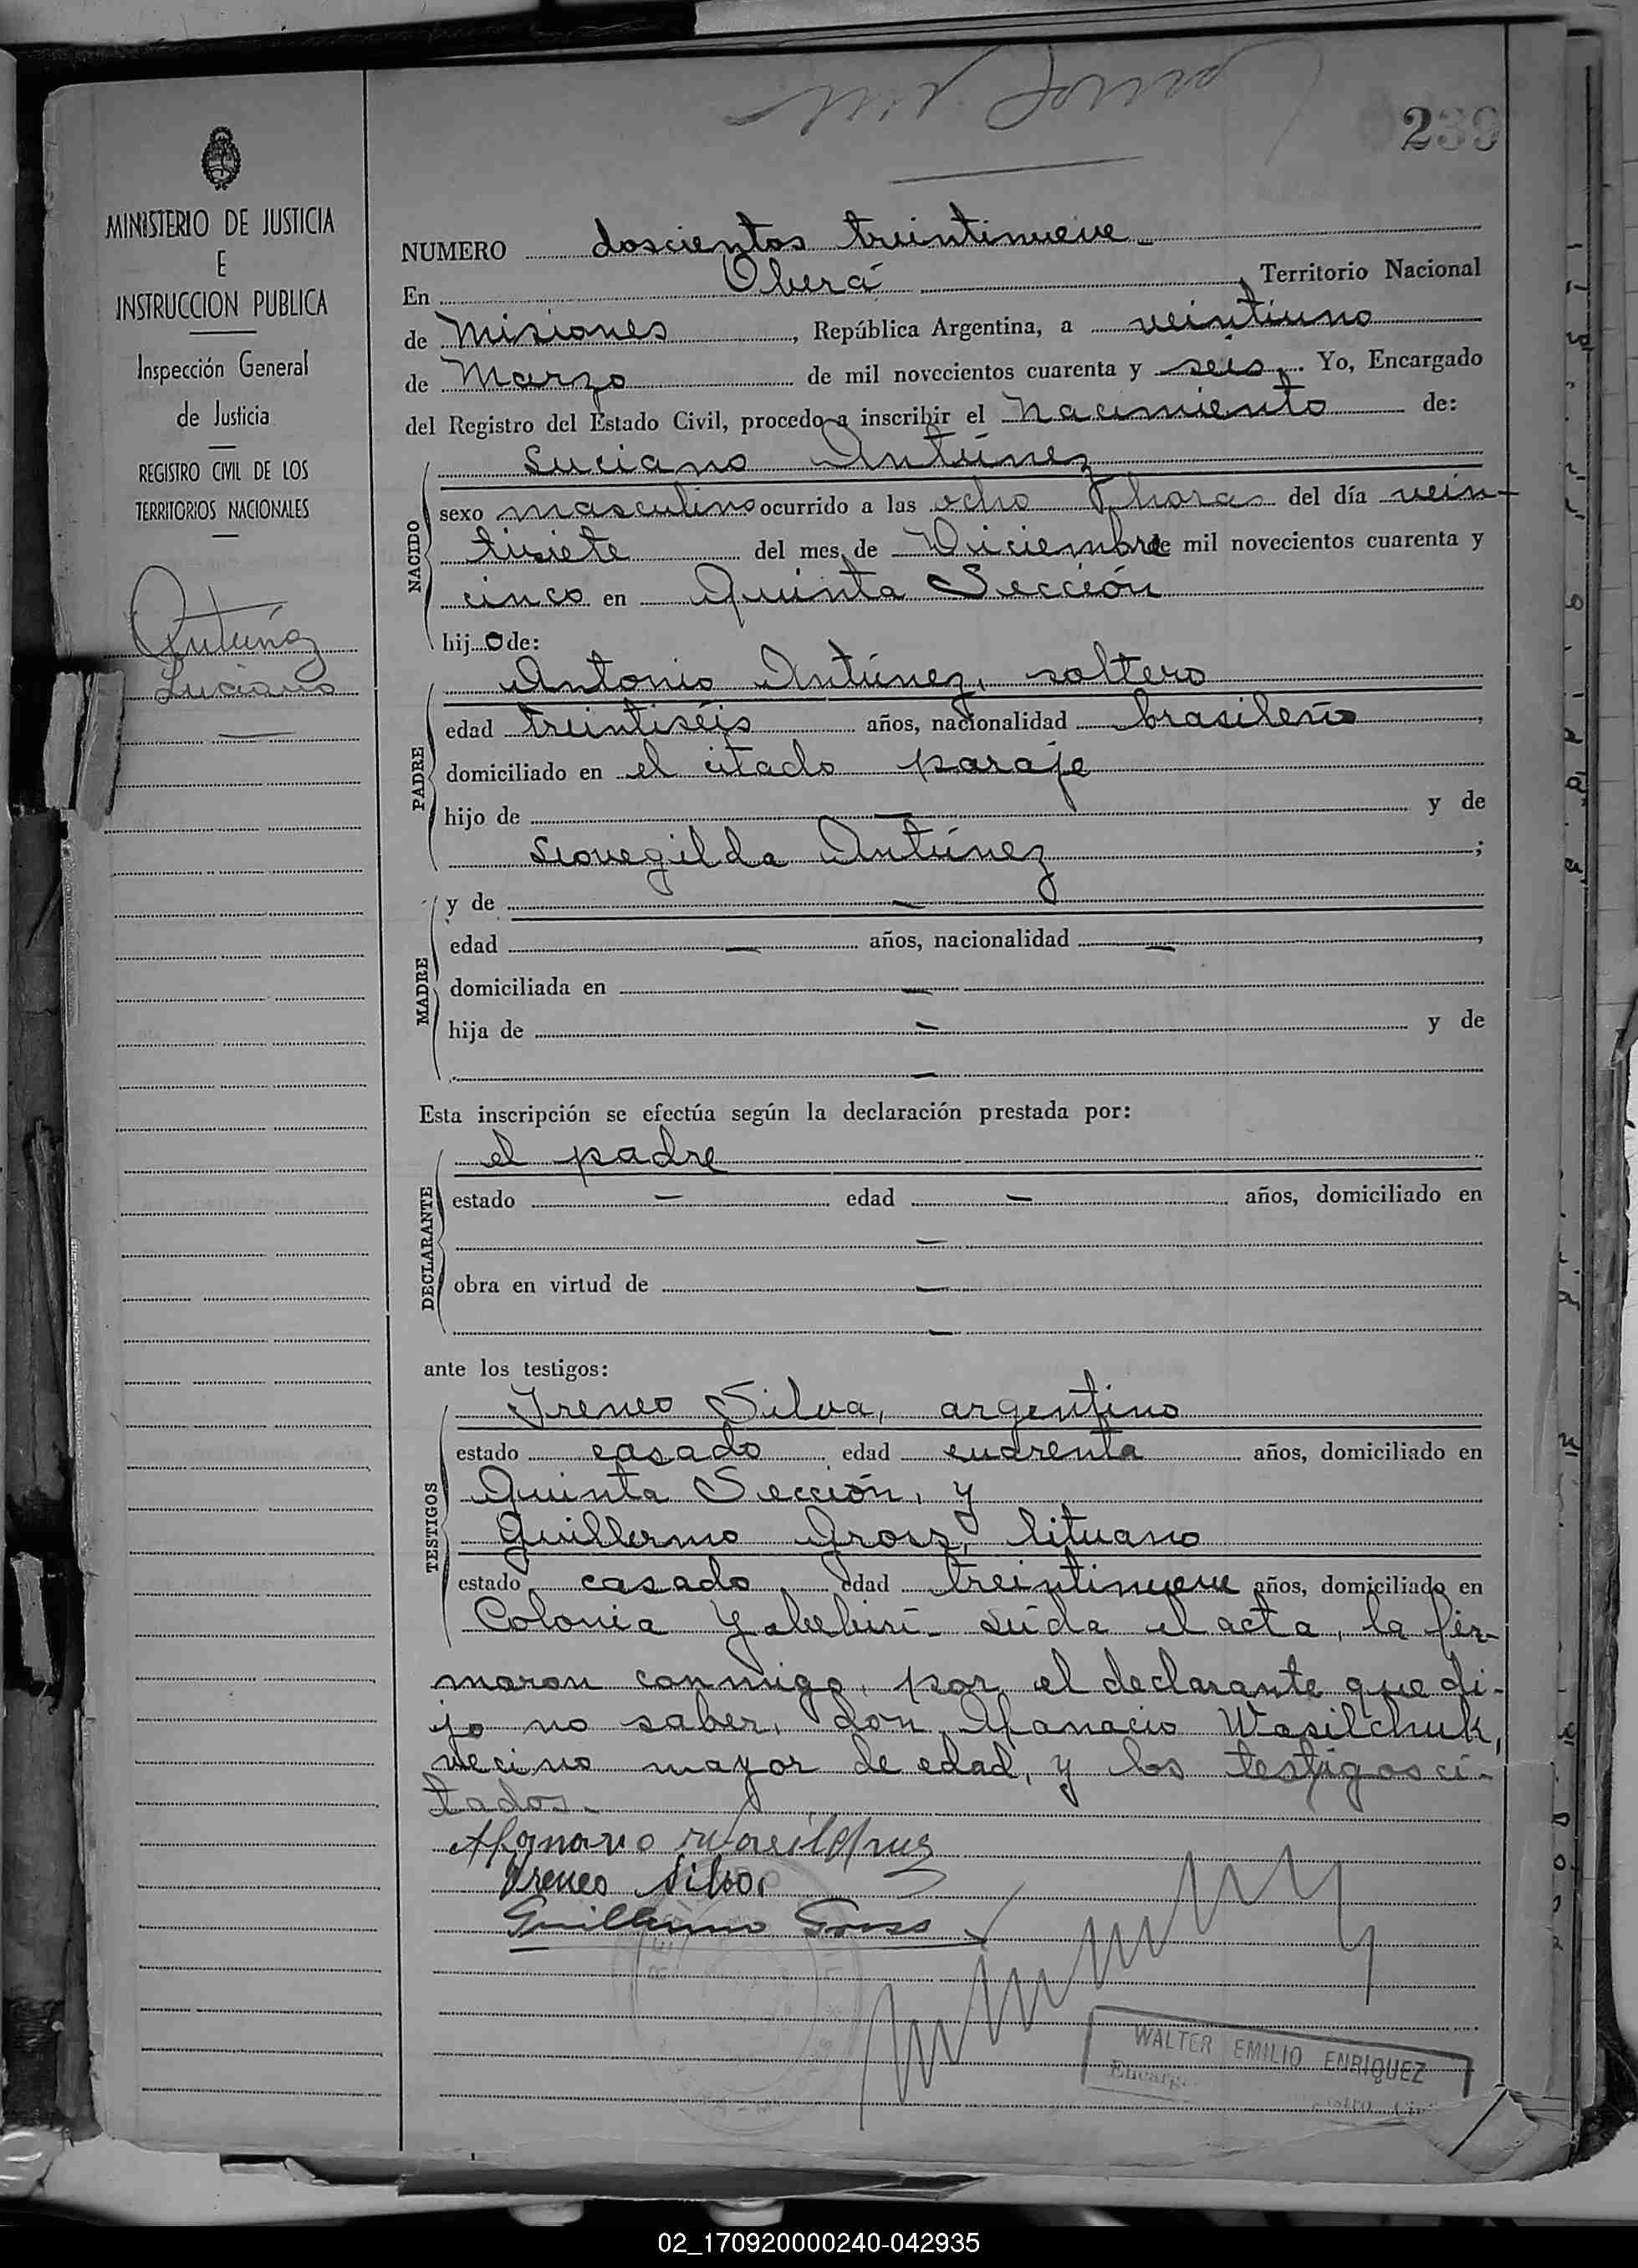 239
MINISTERIO DE JUSTICIA
E
INSTRUCCION PUBLICA
Inspección General
de Justicia
REGISTRO CIVIL DE LOS
TERRITORIOS NACIONALES
Antúnez
Luciano
NUMERO doscientos treintinueve
En Oberá, Territorio Nacional
de Misiones, República Argentina, a veintiuno
de Marzo de mil novecientos cuarenta y seis. Yo, Encargado
del Registro del Estado Civil, procedo a inscribir el nacimiento de:
Luciano Antúnez
NACIDO
sexo masculino ocurrido a las ocho horas del día vein-
tisiete del mes de Diciembre de mil novecientos cuarenta y
cinco en Quinta Sección
hijo de:
Antonio Antúnez, soltero
PADRE
edad treintiséis años, nacionalidad brasileño,
domiciliado en el citado paraje
hijo de — y de
Leovegilda Antúnez;
y de —
MADRE
edad — años, nacionalidad —,
domiciliada en —
hija de — y de
—
Esta inscripción se efectúa según la declaración prestada por:
el padre
DECLARANTE
estado — edad — años, domiciliado en
—
obra en virtud de —
—
ante los testigos:
Ireneo Silva, argentino
TESTIGOS
estado casado, edad cuarenta años, domiciliado en
Quinta Sección, y
Guillermo Gross, lituano
estado casado, edad treintinueve años, domiciliado en
Colonia Yabebirí. Leída el acta, la fir-
maron conmigo, por el declarante que di-
jo no saber, don Afanacio Wasilchuk,
vecino mayor de edad, y los testigos ci-
tados.-
Ireneo Silva
Guillermo Gross
WALTER EMILIO ENRIQUEZ
Encarg.
02_170920000240-042935